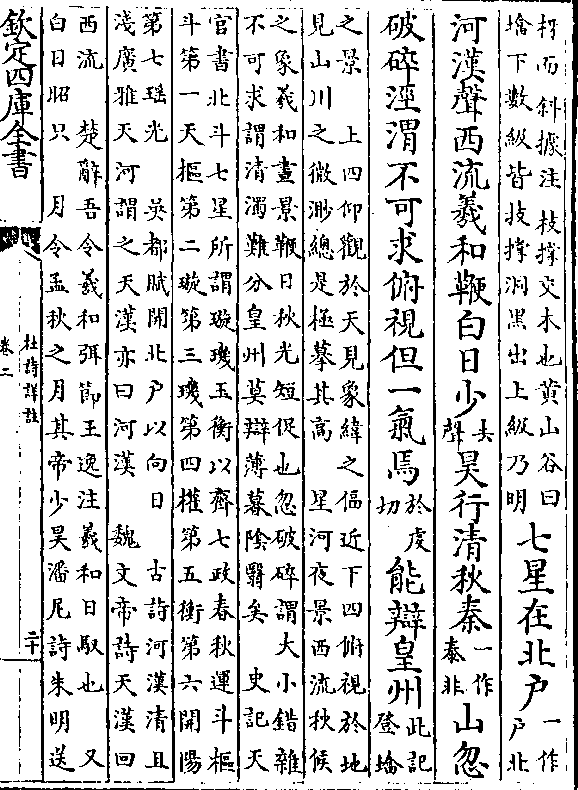 枒而斜據注 枝撐交木也黄山谷曰
墖下數級皆技撐洞黑出上級乃明
七星在北户 一作户北
河漢聲西流羲和鞭白日少 去聲 昊行清秋秦 一作泰非 山忽
破碎涇渭不可求俯視但一氣焉 於虔切 能辯皇州 此記登墖
之景 上四仰觀於天見象緯之偪近下四俯視於地
見山川之微渺總是極摹其高 星河夜景西流秋候
之象羲和晝景鞭日秋光短促也忽破碎謂大小錯雜
不可求謂清濁難分皇州莫辯薄暮陰翳矣 史記天
官書北斗七星所謂璇璣玉衡以齊七政春秋運斗樞
斗第一天樞第二璇第三璣第四權第五衡第六開陽
第七瑶光 吴都賦開北户以向日 古詩河漢清且
淺廣雅天河謂之天漢亦曰河漢 魏文帝詩天漢回
西流 楚辭吾令羲和弭節王逸注羲和日馭也 又
白日昭只 月令孟秋之月其帝少昊潘尼詩朱明送
欽定四庫全書
杜詩詳註
卷二
二十